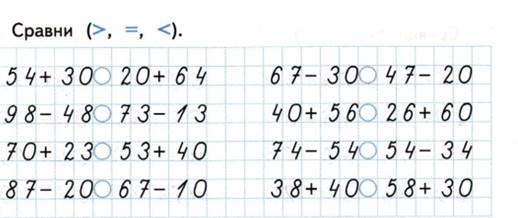 Сравни (>, =, <).
54+30○20+64 67-30○47-20
98-48○73-13 40+56○26+60
70+23○53+40 74-54○54-34
87-20○67-10 38+40○58+30